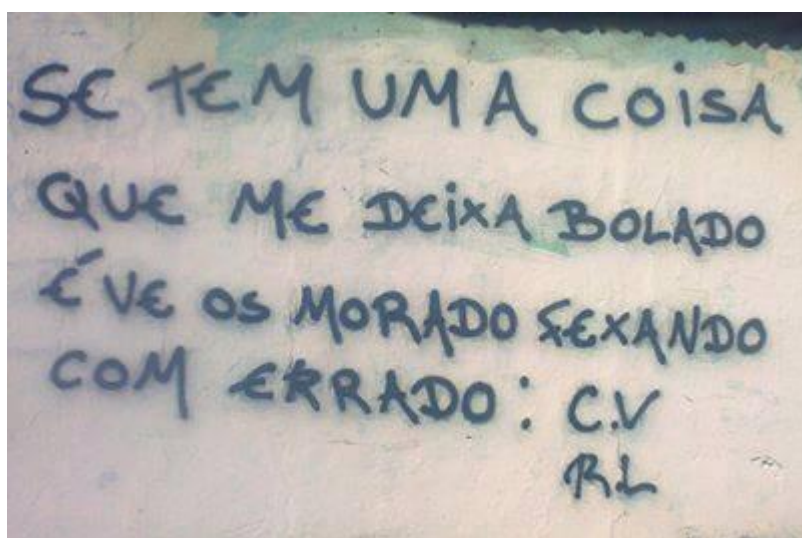 SE TEM UMA COISA
QUE ME DEIXA BOLADO
É VE OS MORADO FEXANDO
COM ERRADO: C.V
RL